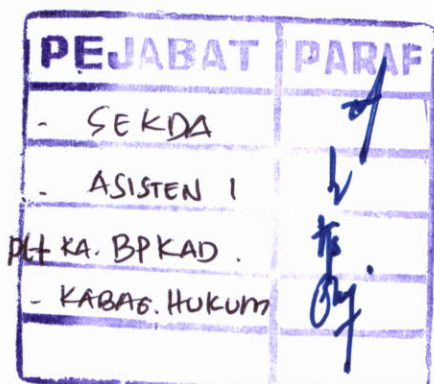 PEJABAT PARAF
- SEKDA
- ASISTEN 1
plt KA. BPKAD.
- KABAG. HUKUM